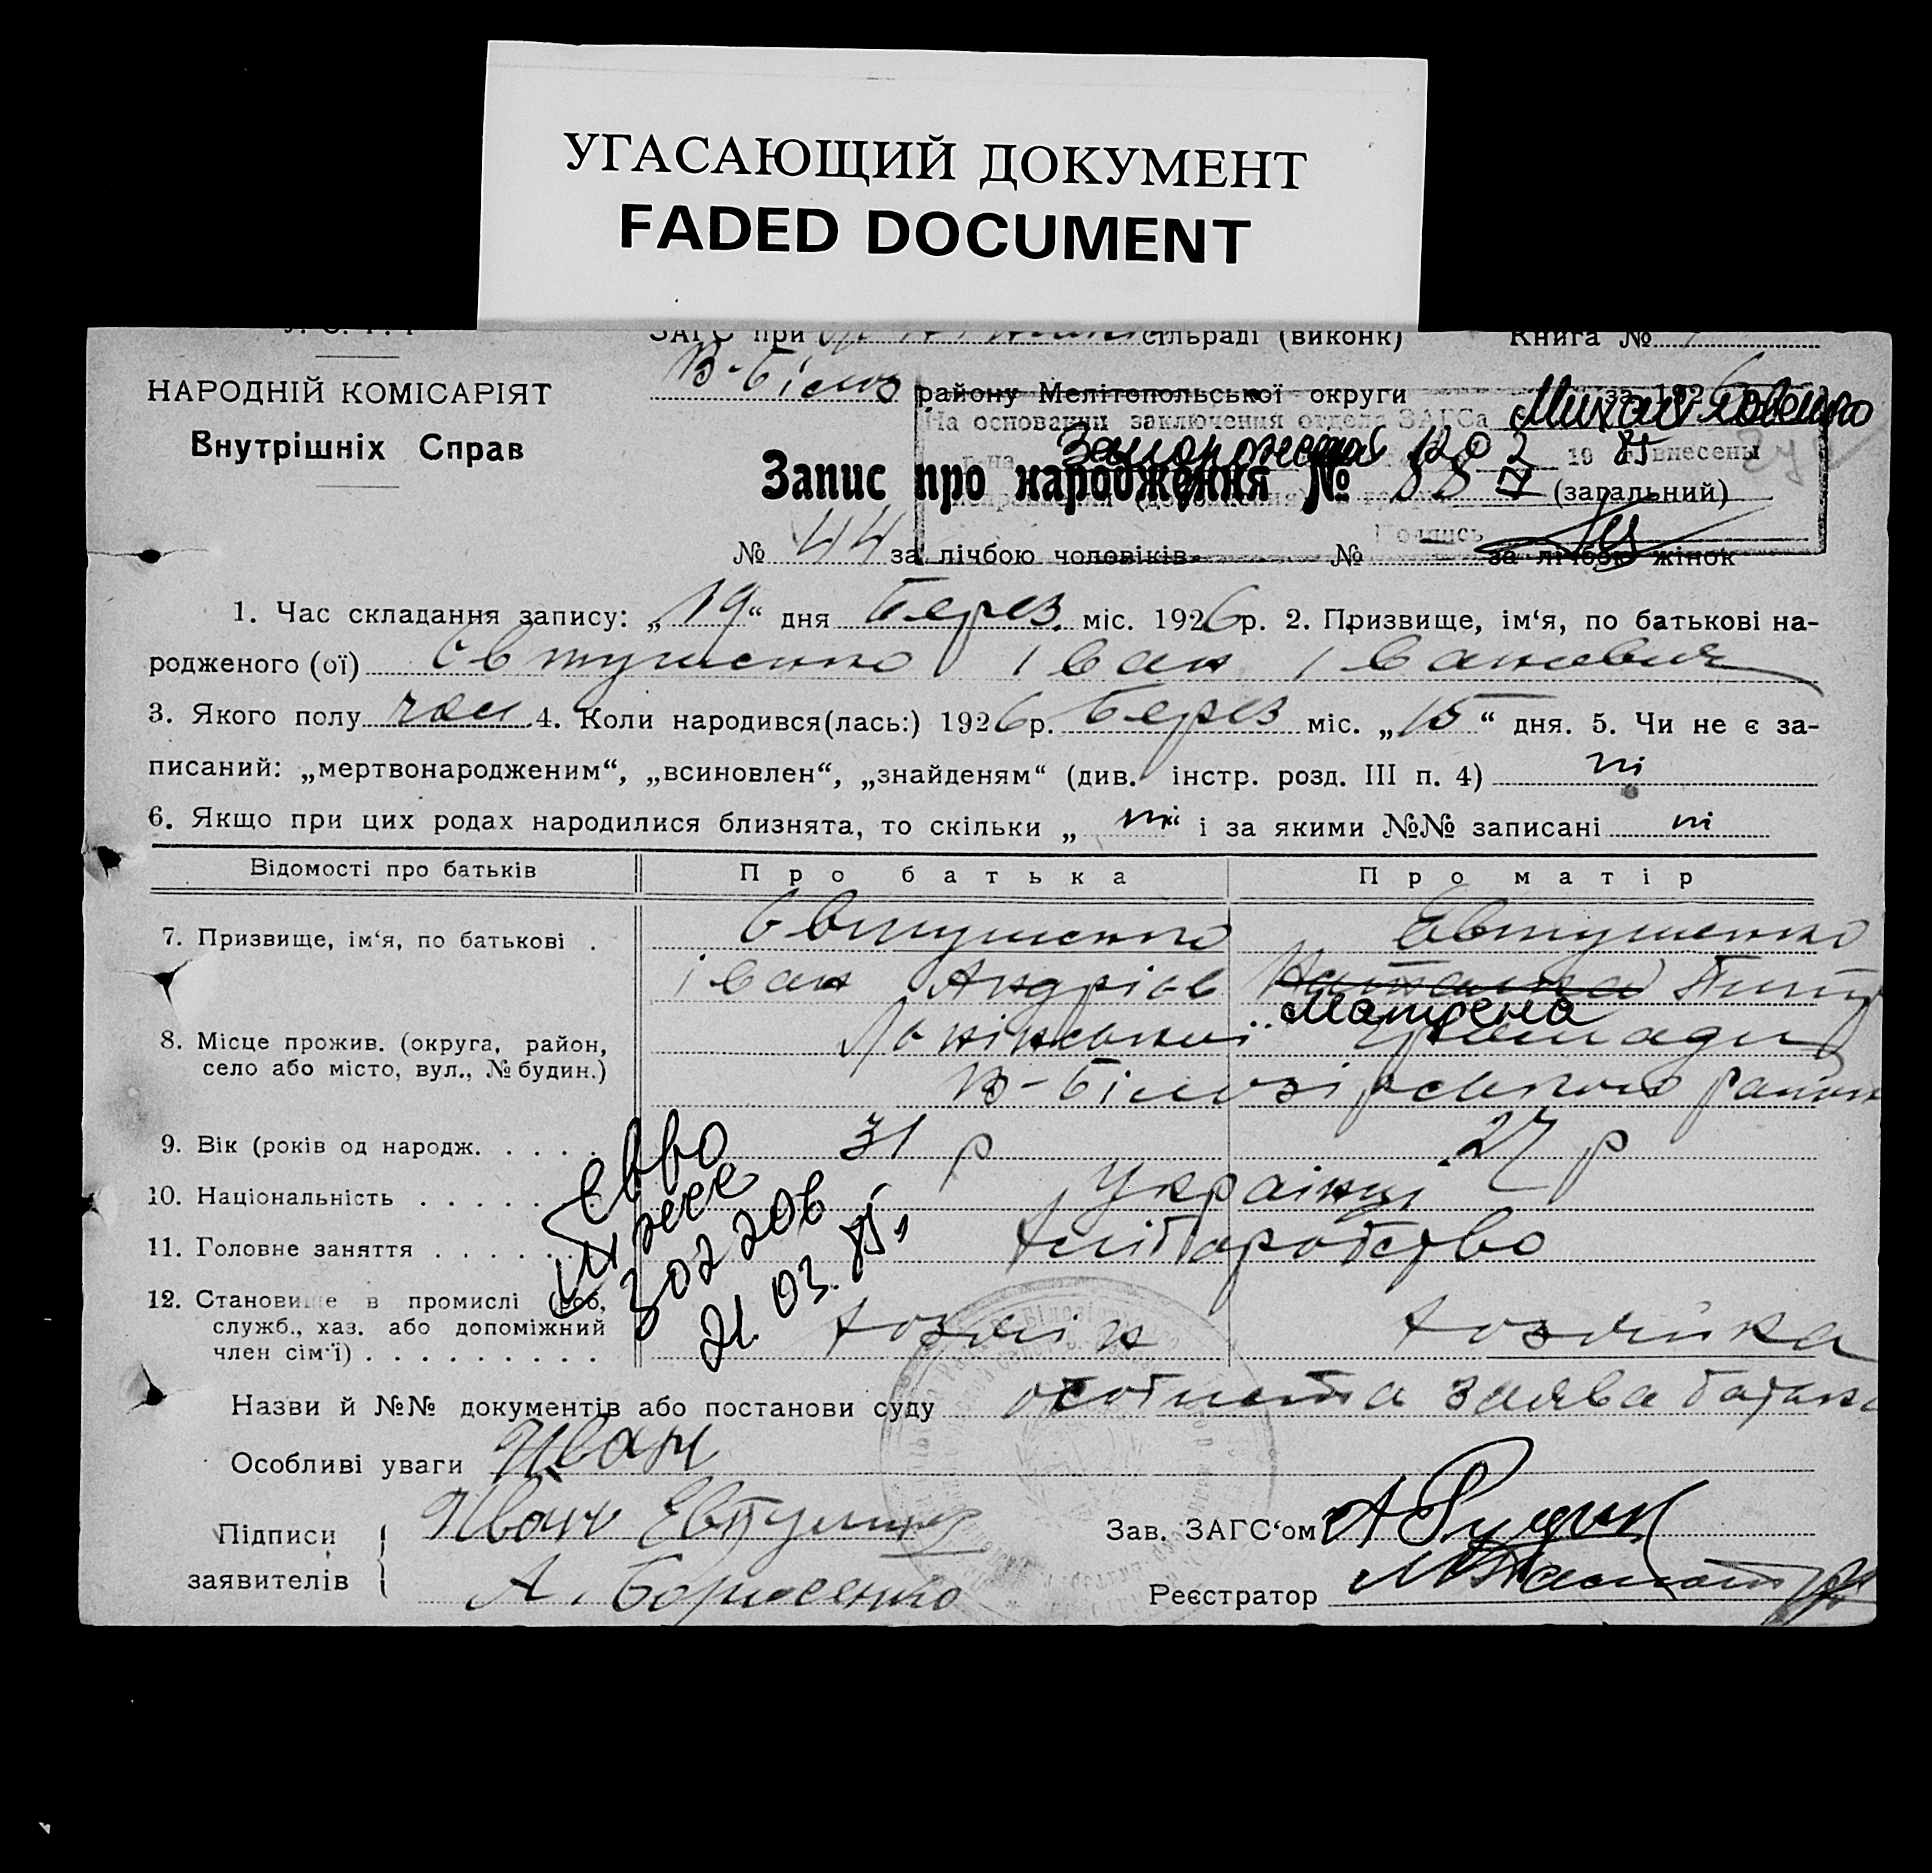 УГАСАЮЩИЙ ДОКУМЕНТ
FADED DOCUMENT
ЗАГС при сільраді (виконк) Книга №
В-Біло району Мелітопольської округи за 1926
НАРОДНІЙ КОМІСАРІЯТ
Внутрішніх Справ
На основании заключения отдела ЗАГСа Михайловского
р-на Запорожской 1985 внесены
Запис про народження № 88 (загальний)
Подпись
№ 44 за лічбою чоловіків № — за лічбою жінок
1. Час складання запису: „19“ дня Берез. міс. 1926р. 2. Призвище, ім‘я, по батькові на-
родженого (ої) Євтушенко Іван Іванович
3. Якого полу чол 4. Коли народився(лась:) 1926р. Берез міс. „15“ дня. 5. Чи не є за-
писаний: „мертвонародженим“, „всиновлен“, „знайденям“ (див. інстр. розд. III п. 4) ні
6. Якщо при цих родах народилися близнята, то скільки „ ні і за якими №№ записані ні
Відомості про батьків Про батька Про матір
7. Призвище, ім‘я, по батькові . Євтушенко Євтушенко
Іван Андріїв Наталка
Мотрена
8. Місце прожив. (округа, район, громади
село або місто, вул., № будин.) В-Білозірського району
9. Вік (років од народж. . . . . 31 р 27 р
10. Національність . . . . . . Українці
11. Головне заняття . . . . . . Хліборобство
12. Становище в промислі (роб,
служб., хаз. або допоміжний
член сім‘ї) . . . . . . . . . хозяїн хозяйка
302206
21.03.85
Назви й №№ документів або постанови суду особиста заява батька
Особливі уваги Иван
Підписи Иван Евтушенко Зав. ЗАГС‘ом
заявителів А. Борисенко Реєстратор